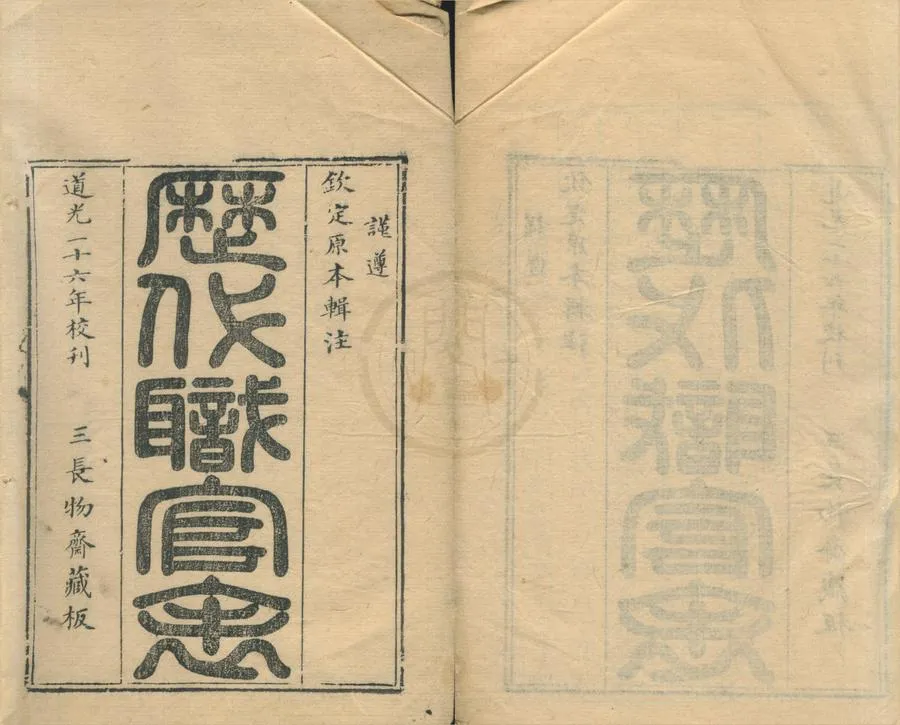 謹遵
欽定原本輯注
歷代職官表
道光二十六年校刊　三長物齋藏板